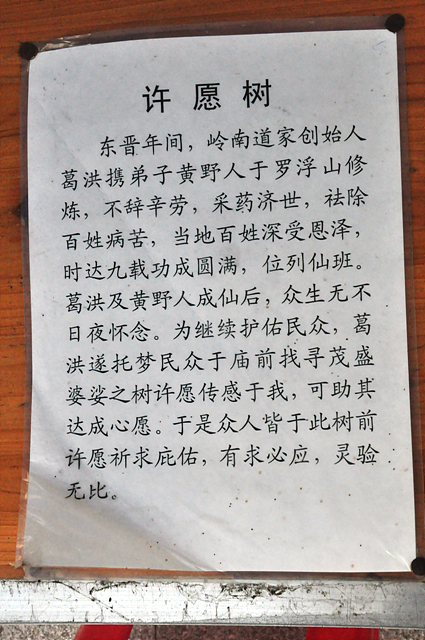 许愿树
东晋年间，岭南道家创始人
葛洪携弟子黄野人于罗浮山修
炼，不辞辛劳，采药济世，祛除
百姓病苦，当地百姓深受恩泽，
时达九载功成圆满，位列仙班。
葛洪及黄野人成仙后，众生无不
日夜怀念。为继续护佑民众，葛
洪遂托梦民众于庙前找寻茂盛
婆娑之树许愿传感于我，可助其
达成心愿。于是众人皆于此树前
许愿祈求庇佑，有求必应，灵验
无比。